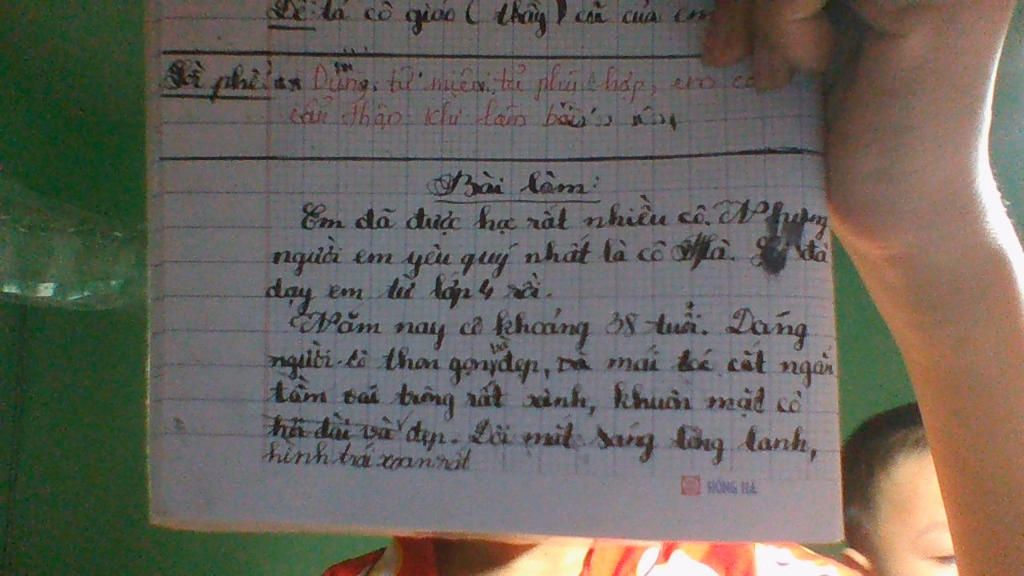 Đề tả cô giáo (thầy) cũ của em
Lời phê: Dùng từ miêu tả phù hợp, em
cẩn thận khi làm bài
Bài làm:
Em đã được học rất nhiều cô. Nhưng
người em yêu quý nhất là cô đã
dạy em từ lớp 4 rồi.
Năm nay cô khoảng 38 tuổi. Dáng
người cô thon gọn, đẹp, và mái tóc cắt ngắn
tầm vai trông rất xinh, khuôn mặt cô
hơi dài và đẹp. Đôi mắt sáng long lanh,
hình trái xoan rất
HỒNG HÀ